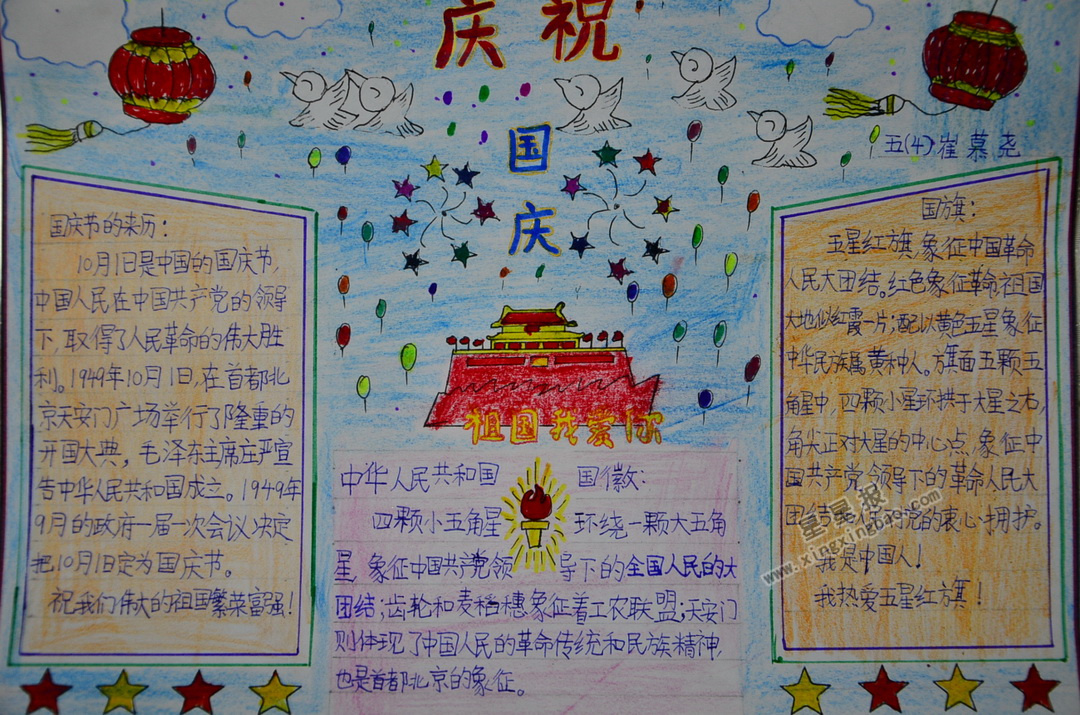 庆祝
国
庆
五(4)崔慕尧
国庆节的来历:
10月1日是中国的国庆节,
中国人民在中国共产党的领导
下,取得了人民革命的伟大胜
利。1949年10月1日,在首都北
京天安门广场举行了隆重的
开国大典,毛泽东主席庄严宣
告中华人民共和国成立。1949年
9月的政府一届一次会议决定
把10月1日定为国庆节。
祝我们伟大的祖国繁荣富强!
祖国我爱你
中华人民共和国 国徽:
四颗小五角星 环绕一颗大五角
星,象征中国共产党领 导下的全国人民的大
团结;齿轮和麦稻穗象征着工农联盟;天安门
则体现了中国人民的革命传统和民族精神,
也是首都北京的象征。
国旗:
五星红旗,象征中国革命
人民大团结。红色象征革命,祖国
大地似红霞一片;配以黄色五星象征
中华民族属黄种人。旗面五颗五
角星中,四颗小星环拱于大星之右,
角尖正对大星的中心点,象征中
国共产党领导下的革命人民大
团结 党的衷心拥护。
我是中国人!
我热爱五星红旗!
星星报
www.xingxingbao.com